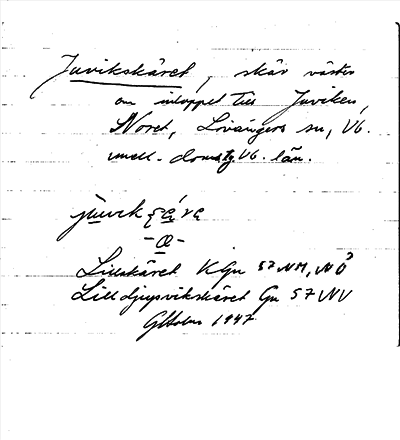 Juvikskäret, skär väster
om inloppet till Juviken,
Noret, Lövångers sn, Vb.
mell. domstg Vb. län.
Lillskäret KGu 57 NM, NÖ
Lilldjupsvikskäret Gu 57 NV
1947